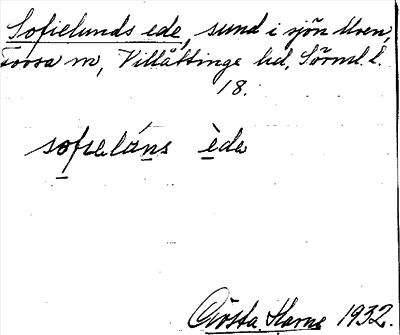 Sofielunds ede, sund i sjön Uven,
Torsa m, Villåttinge hd, Sörml. l.
18.
sofielúns ède
Gösta Karne 1932.